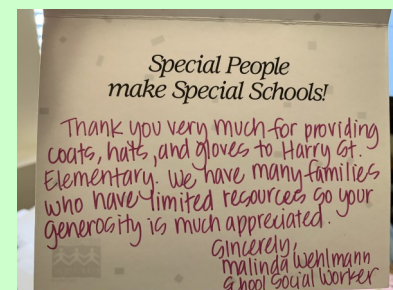 Special People
make Special Schools!
Thank you very much for providing
coats, hats, and gloves to Harry St.
Elementary. We have many families
who have limited resources so your
generosity is much appreciated.
Sincerely,
Malinda Wehlmann
School Social Worker